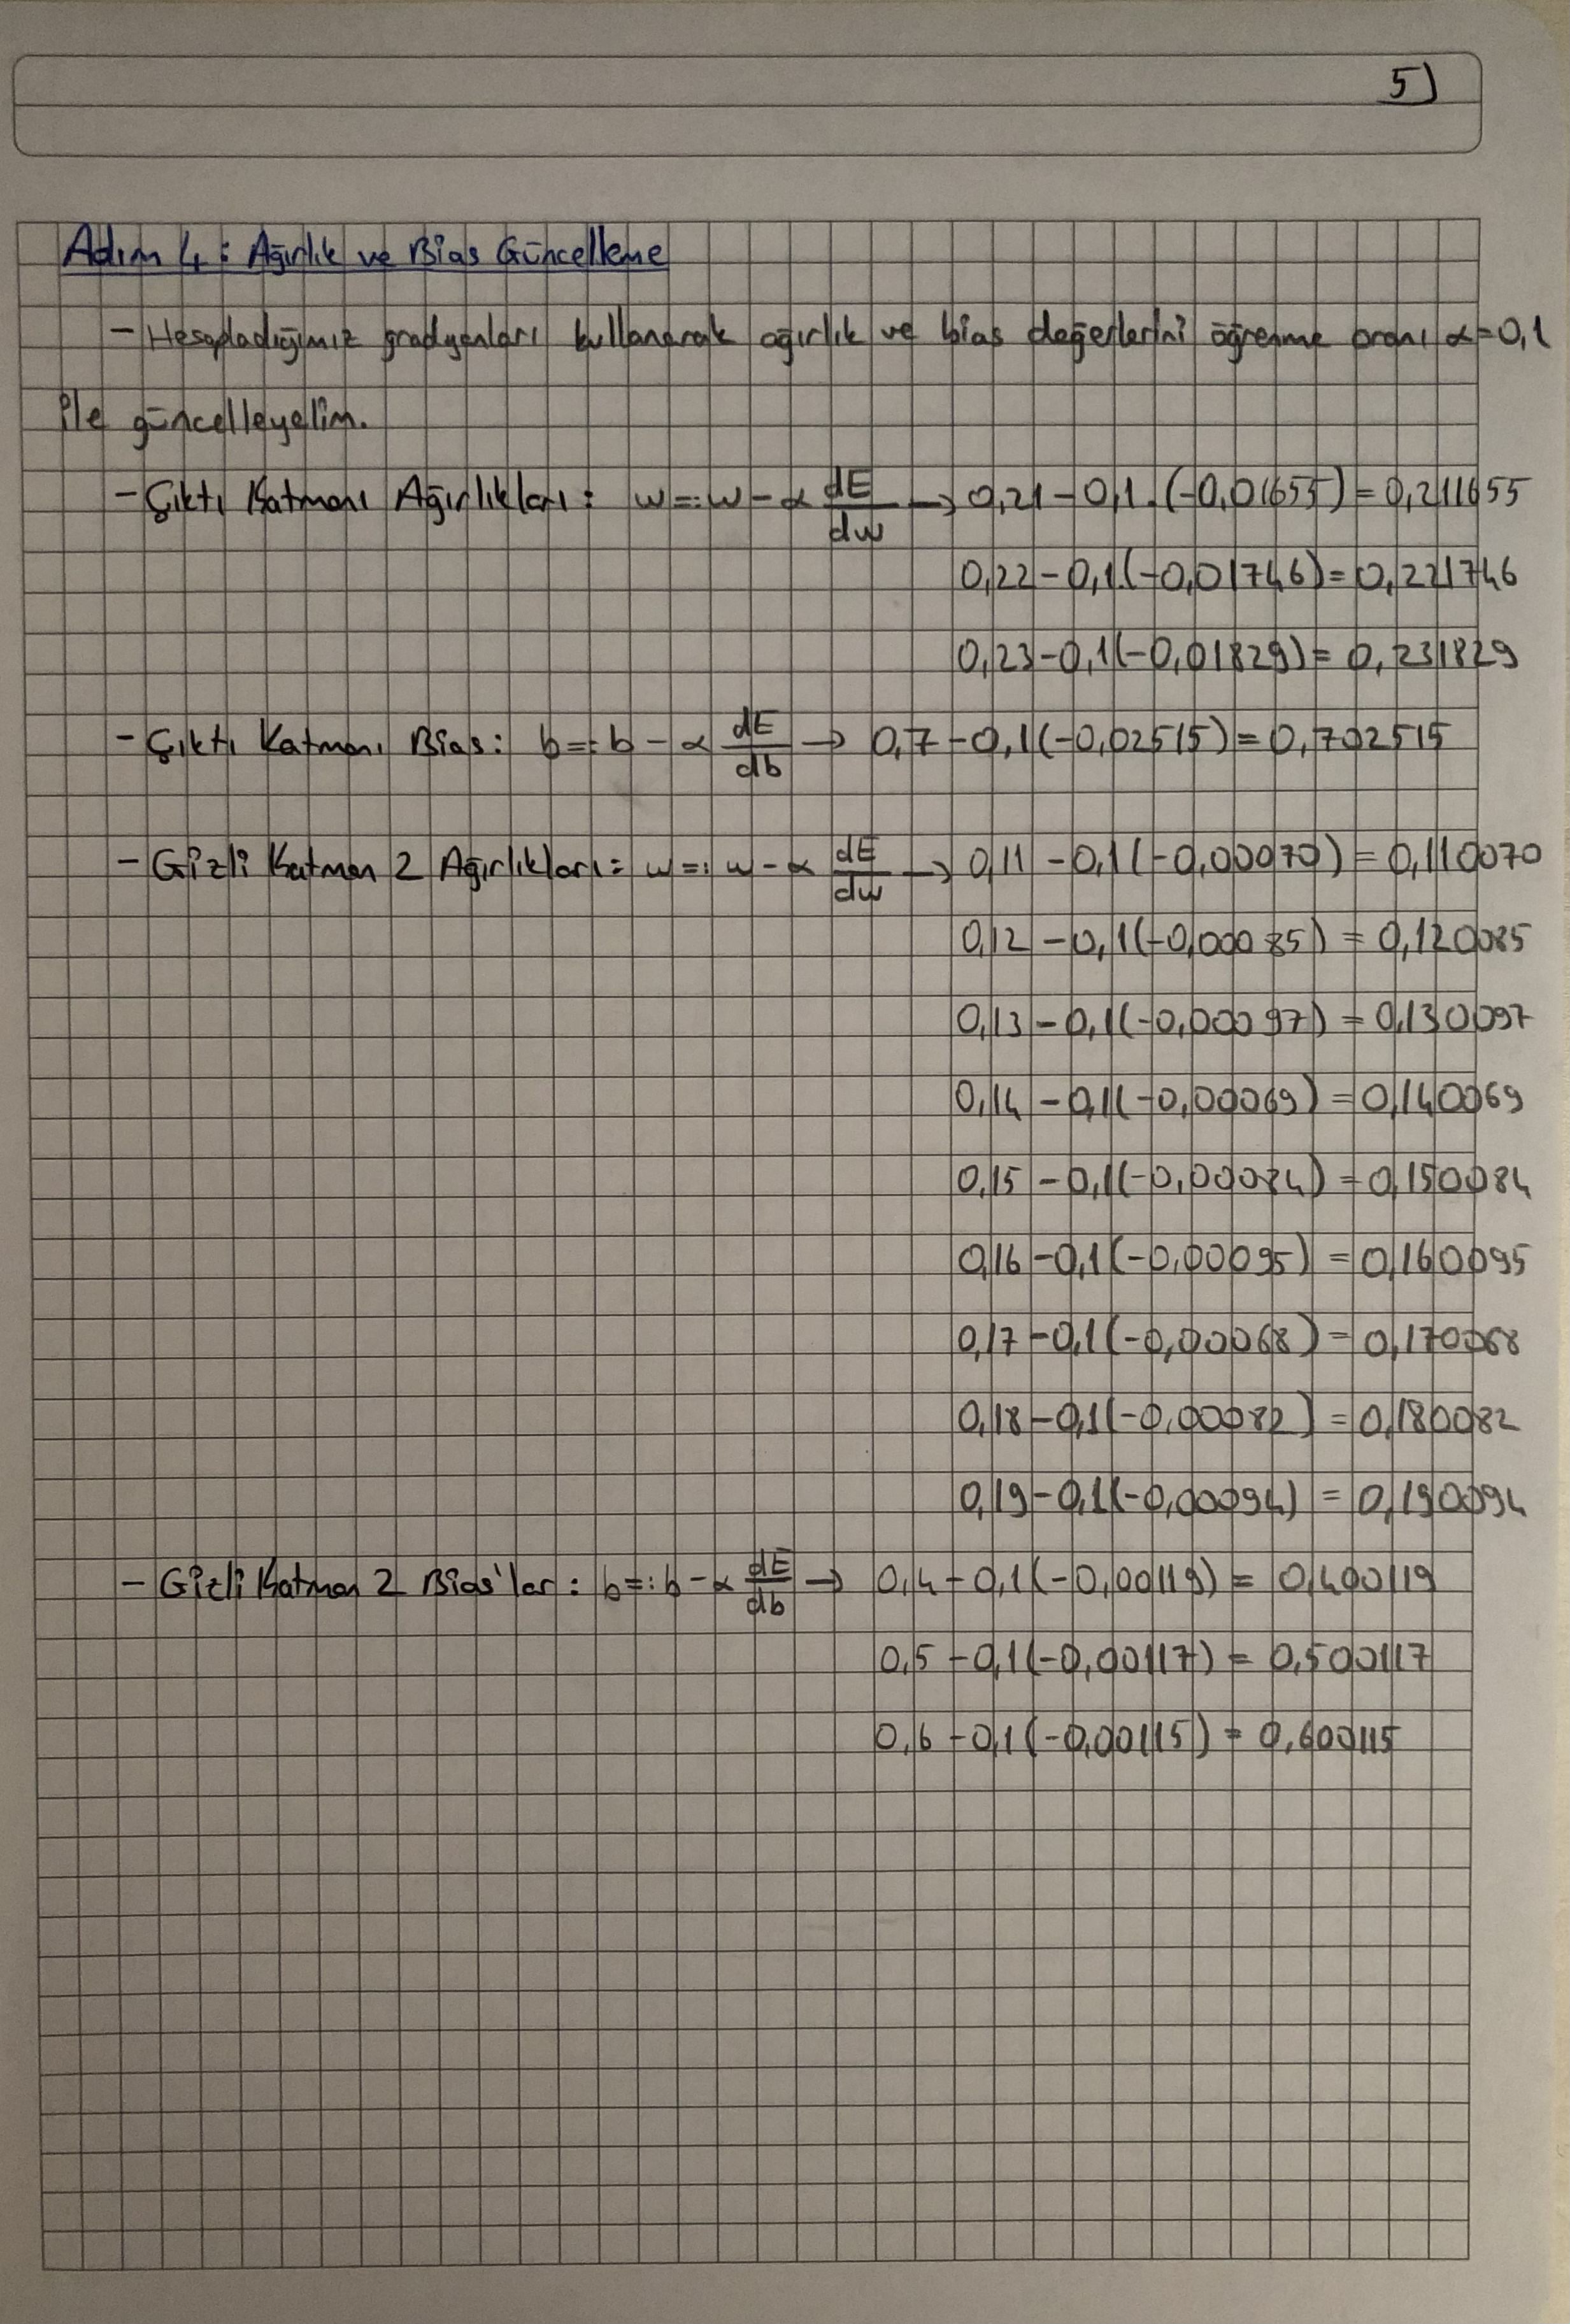 5)
Adım 4 : Ağırlık ve Bias Güncelleme
- Hesapladığımız gradyanları kullanarak ağırlık ve bias değerlerini öğrenme oranı α=0,1
ile güncelleyelim.
- Çıktı Katmanı Ağırlıkları: w=:w-α dE/dw → 0,21-0,1.(-0,01655)=0,211655
0,22-0,1.(-0,01746)=0,221746
0,23-0,1(-0,01829)=0,231829
- Çıktı Katmanı Bias: b=:b-α dE/db → 0,7-0,1(-0,02515)=0,702515
- Gizli Katman 2 Ağırlıkları: w=:w-α dE/dw → 0,11-0,1(-0,00070)=0,110070
0,12-0,1(-0,00085)=0,120085
0,13-0,1(-0,00097)=0,130097
0,14-0,1(-0,00069)=0,140069
0,15-0,1(-0,00084)=0,150084
0,16-0,1(-0,00095)=0,160095
0,17-0,1(-0,00068)=0,170068
0,18-0,1(-0,00082)=0,180082
0,19-0,1(-0,00094)=0,190094
- Gizli Katman 2 Bias'lar: b=:b-α dE/db → 0,4-0,1(-0,00119)=0,400119
0,5-0,1(-0,00117)=0,500117
0,6-0,1(-0,00115)=0,600115